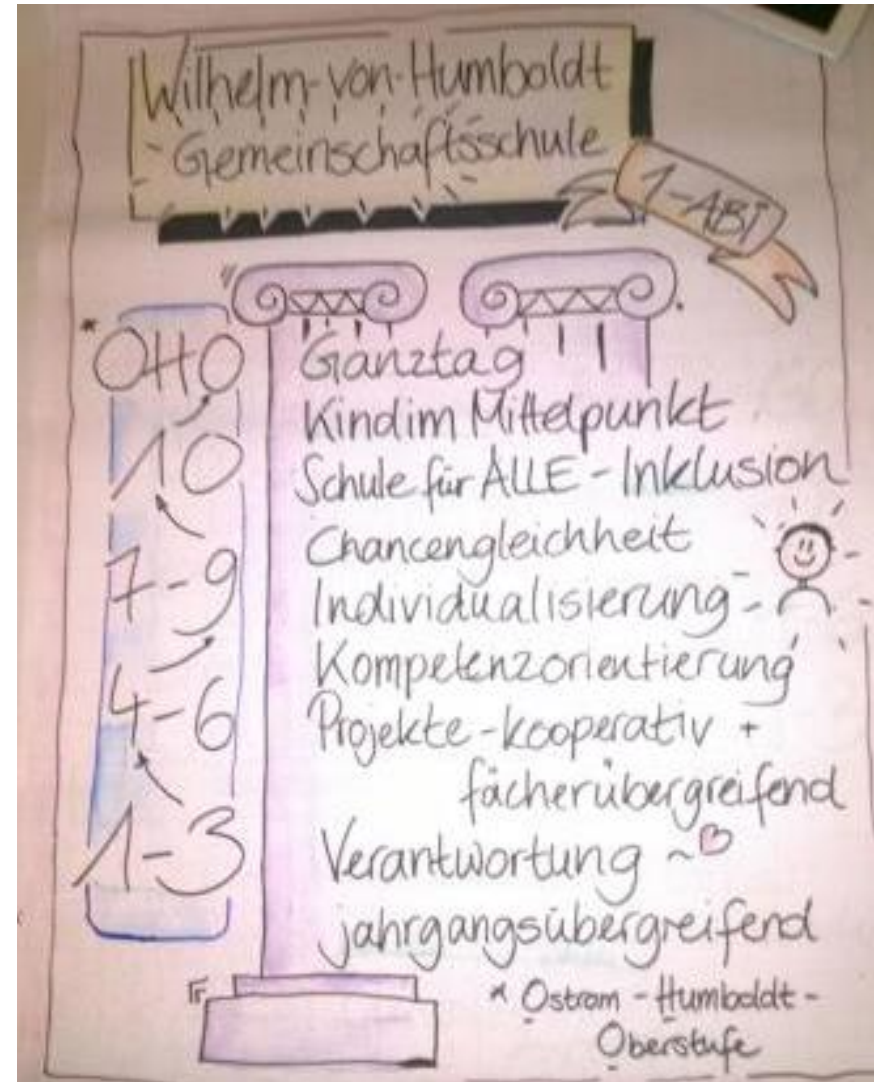 Wilhelm-von-Humboldt
Gemeinschaftsschule
1-ABI
* OHO
10
7-9
4-6
1-3
Ganztag
Kind im Mittelpunkt
Schule für ALLE - Inklusion
Chancengleichheit
Individualisierung
Kompetenzorientierung
Projekte - kooperativ +
fächerübergreifend
Verantwortung ~
jahrgangsübergreifend
* Ostrom - Humboldt -
Oberstufe